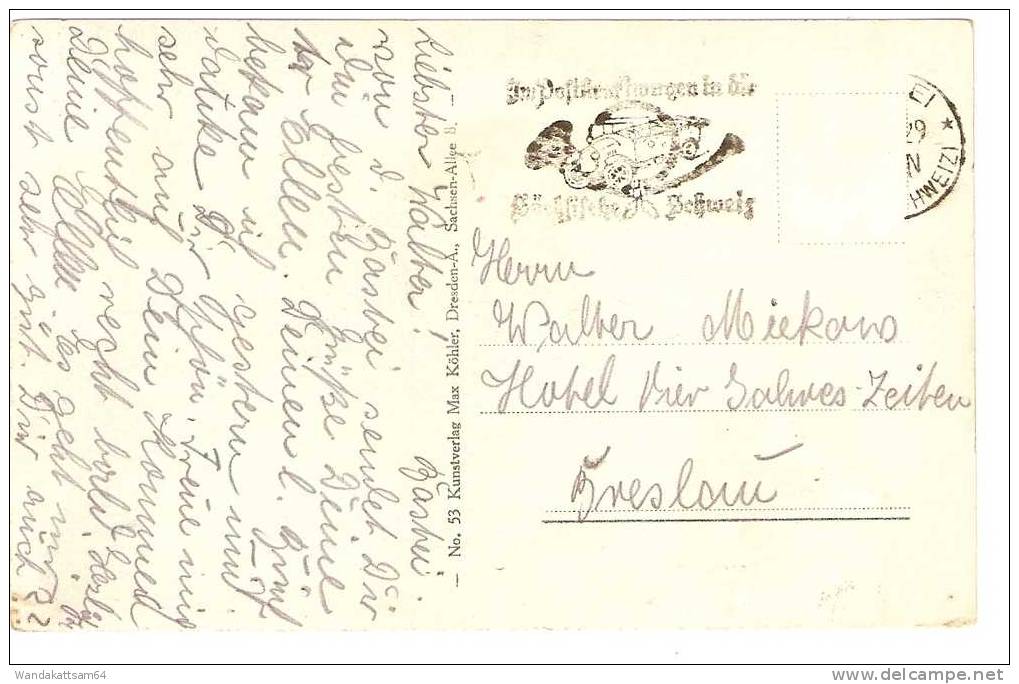 Bastei.
Liebster Walter!
von d. Bastei sendet Dir
die besten Grüße Deine
Ellen. Deinen l. Brief
bekam ich gestern und
danke Dir schön. Freue mich
sehr auf Dein Kommen
hoffentlich recht bald. Herzl. Gr.
Deine Ellen Es geht mir
sonst sehr gut. Dir auch?
— No. 53 Kunstverlag Max Köhler, Dresden-A., Sachsen-Allee 8. —
Im Postkraftwagen in die
Sächsische Schweiz
EI
29
N
HWEIZ)
Herrn
Walter Miekows
Hotel Vier Jahres-Zeiten
Breslau
Wandakattsam64
www.delcampe.net